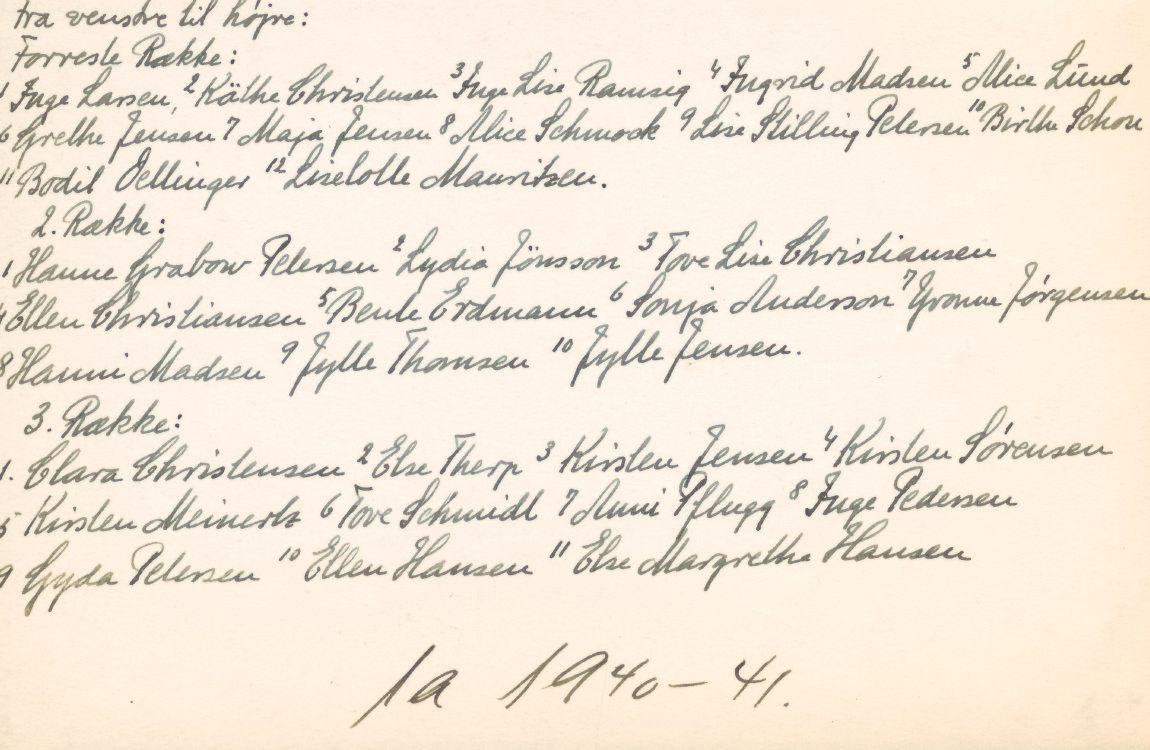 fra venstre til højre:
Forreste Række:
1 Inge Larsen, 2 Käthe Christensen 3 Inge Lise Ramsig 4 Ingrid Madsen 5 Alice Lund
6 Grethe Jensen 7 Maja Jensen 8 Alice Schmock 9 Lise Stilling Petersen 10 Birthe Schou
11 Bodil Oellinger 12 Liselotte Mauritzen.
2. Række:
1 Hanne Grabow Petersen 2 Lydia Jönsson 3 Tove Lise Christiansen
4 Ellen Christiansen 5 Bente Erdmann 6 Sonja Anderson 7 Yvonne Jørgensen
8 Hanni Madsen 9 Jytte Thomsen 10 Jytte Jensen.
3. Række:
1. Clara Christensen 2 Else Therp 3 Kirsten Jensen 4 Kirsten Sørensen
5 Kirsten Meinertz 6 Tove Schmidt 7 Anni Pflugg 8 Inge Pedersen
9 Gyda Petersen 10 Ellen Hansen 11 Else Margrethe Hansen
1a 1940-41.